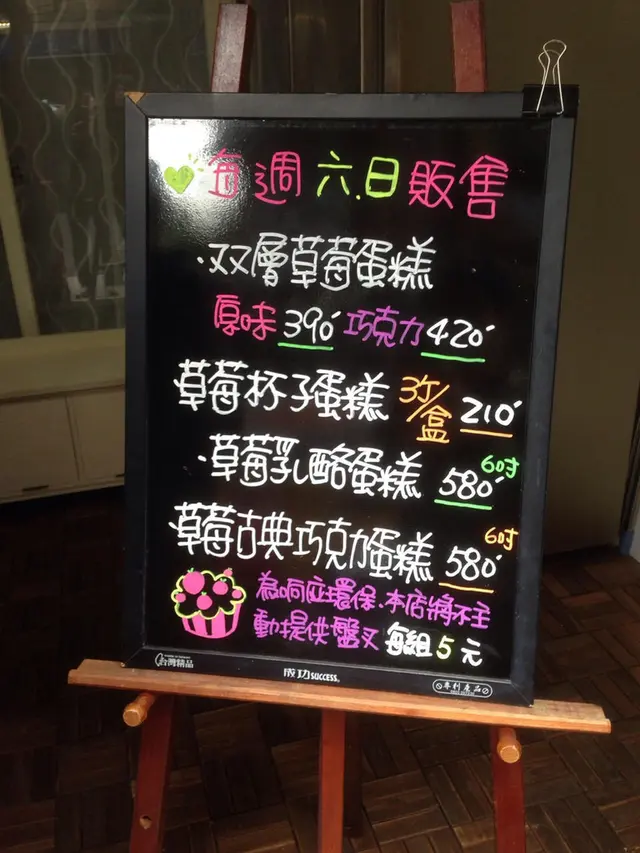 每週六.日販售
·双層草莓蛋糕
原味390 巧克力420
草莓杯子蛋糕 3入/盒 210
·草莓乳酪蛋糕 580 6吋
草莓古典巧克力蛋糕 580 6吋
為响应環保.本店將不主
動提供盤叉 每組5元
台灣精品
成功SUCCESS®
專利產品